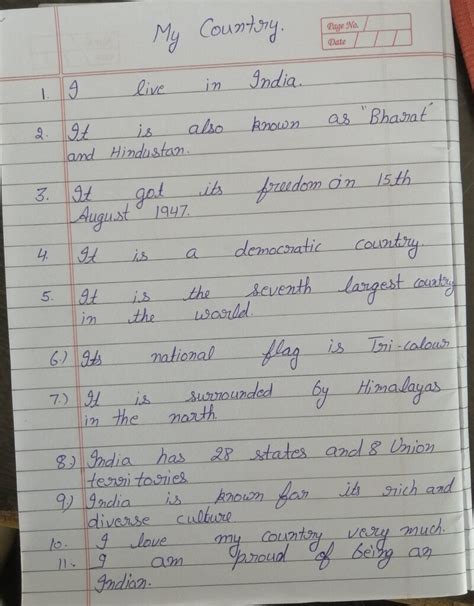 My Country.
Page No.
Date
1. I live in India.
2. It is also known as "Bharat"
and Hindustan.
3. It got its freedom on 15th
August 1947.
4. It is a democratic country.
5. It is the seventh largest country
in the world.
6.) Its national flag is Tri-colour
7.) It is surrounded by Himalayas
in the north
8.) India has 28 states and 8 Union
territories
9.) India is known for its rich and
diverse culture
10. I love my country very much.
11. I am proud of being an
Indian.